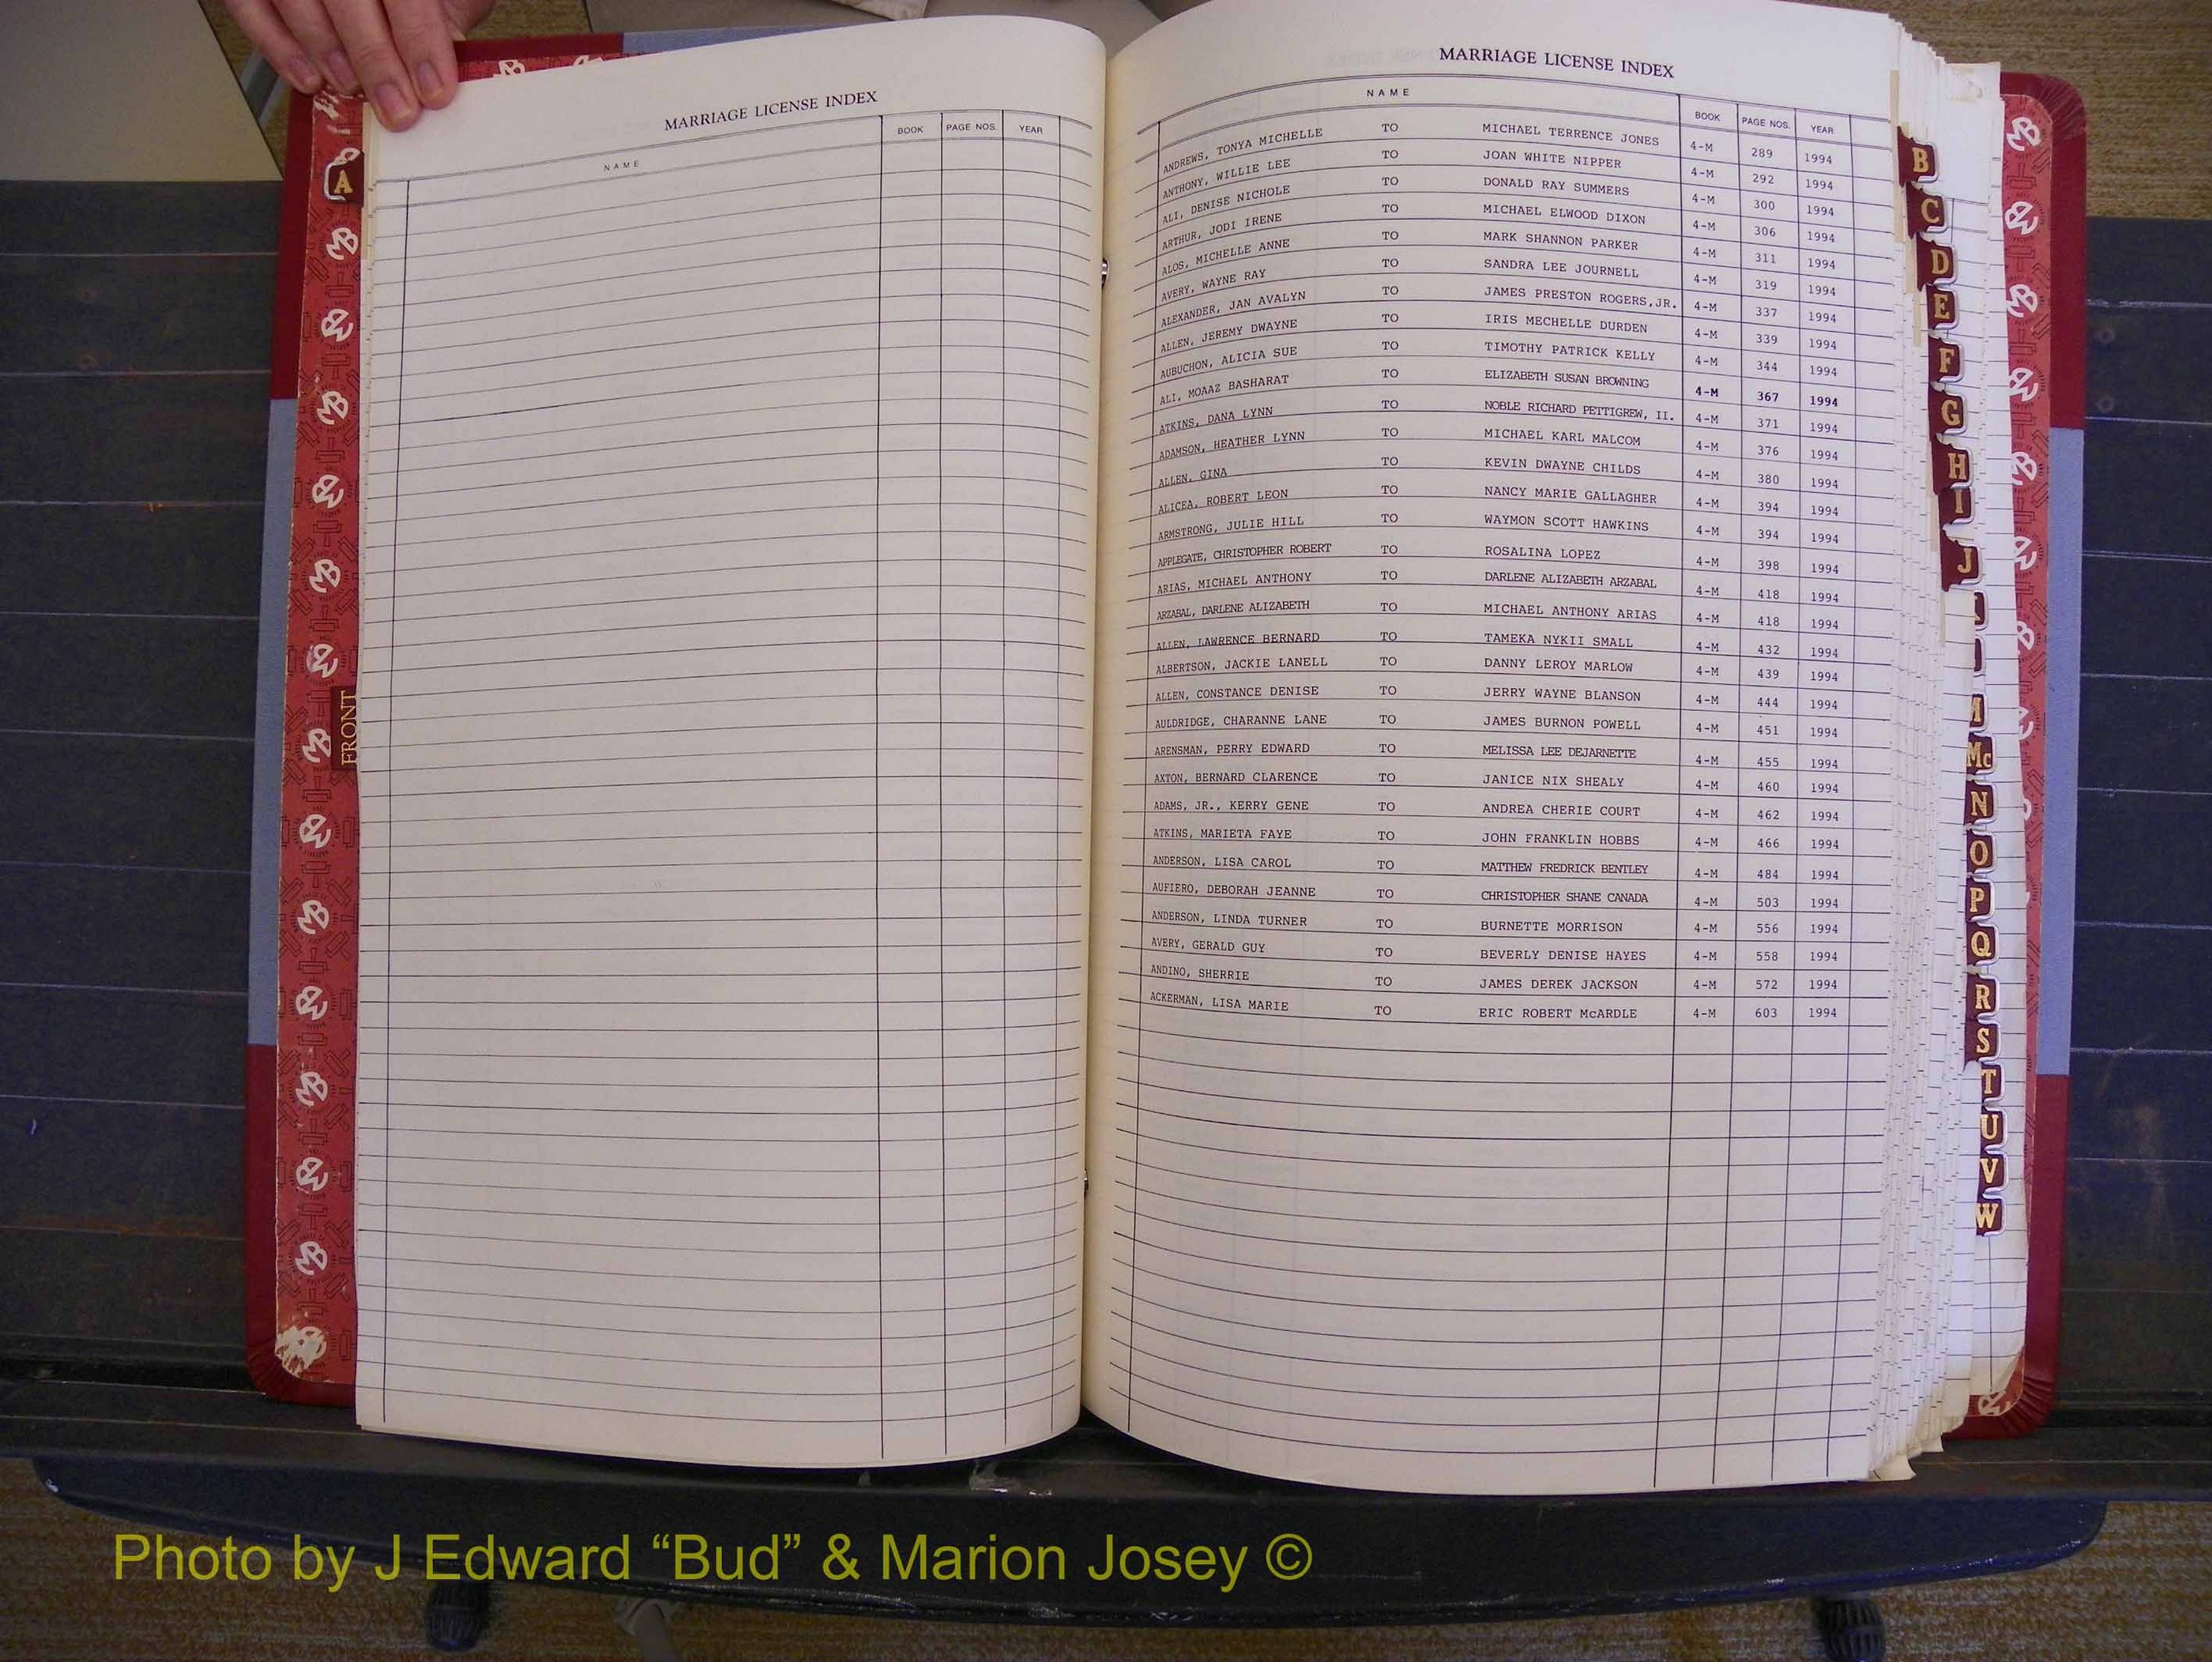 MARRIAGE LICENSE INDEX
NAME BOOK PAGE NOS. YEAR
A
FRONT
MARRIAGE LICENSE INDEX
NAME BOOK PAGE NOS. YEAR
ANDREWS, TONYA MICHELLE TO MICHAEL TERRENCE JONES 4-M 289 1994
ANTHONY, WILLIE LEE TO JOAN WHITE NIPPER 4-M 292 1994
ALI, DENISE NICHOLE TO DONALD RAY SUMMERS 4-M 300 1994
ARTHUR, JODI IRENE TO MICHAEL ELWOOD DIXON 4-M 306 1994
ALOS, MICHELLE ANNE TO MARK SHANNON PARKER 4-M 311 1994
AVERY, WAYNE RAY TO SANDRA LEE JOURNELL 4-M 319 1994
ALEXANDER, JAN AVALYN TO JAMES PRESTON ROGERS,JR. 4-M 337 1994
ALLEN, JEREMY DWAYNE TO IRIS MECHELLE DURDEN 4-M 339 1994
AUBUCHON, ALICIA SUE TO TIMOTHY PATRICK KELLY 4-M 344 1994
ALI, MOAAZ BASHARAT TO ELIZABETH SUSAN BROWNING 4-M 367 1994
ATKINS, DANA LYNN TO NOBLE RICHARD PETTIGREW, II. 4-M 371 1994
ADAMSON, HEATHER LYNN TO MICHAEL KARL MALCOM 4-M 376 1994
ALLEN, GINA TO KEVIN DWAYNE CHILDS 4-M 380 1994
ALICEA, ROBERT LEON TO NANCY MARIE GALLAGHER 4-M 394 1994
ARMSTRONG, JULIE HILL TO WAYMON SCOTT HAWKINS 4-M 394 1994
APPLEGATE, CHRISTOPHER ROBERT TO ROSALINA LOPEZ 4-M 398 1994
ARIAS, MICHAEL ANTHONY TO DARLENE ALIZABETH ARZABAL 4-M 418 1994
ARZABAL, DARLENE ALIZABETH TO MICHAEL ANTHONY ARIAS 4-M 418 1994
ALLEN, LAWRENCE BERNARD TO TAMEKA NYKII SMALL 4-M 432 1994
ALBERTSON, JACKIE LANELL TO DANNY LEROY MARLOW 4-M 439 1994
ALLEN, CONSTANCE DENISE TO JERRY WAYNE BLANSON 4-M 444 1994
AULDRIDGE, CHARANNE LANE TO JAMES BURNON POWELL 4-M 451 1994
ARENSMAN, PERRY EDWARD TO MELISSA LEE DEJARNETTE 4-M 455 1994
AXTON, BERNARD CLARENCE TO JANICE NIX SHEALY 4-M 460 1994
ADAMS, JR., KERRY GENE TO ANDREA CHERIE COURT 4-M 462 1994
ATKINS, MARIETA FAYE TO JOHN FRANKLIN HOBBS 4-M 466 1994
ANDERSON, LISA CAROL TO MATTHEW FREDRICK BENTLEY 4-M 484 1994
AUFIERO, DEBORAH JEANNE TO CHRISTOPHER SHANE CANADA 4-M 503 1994
ANDERSON, LINDA TURNER TO BURNETTE MORRISON 4-M 556 1994
AVERY, GERALD GUY TO BEVERLY DENISE HAYES 4-M 558 1994
ANDINO, SHERRIE TO JAMES DEREK JACKSON 4-M 572 1994
ACKERMAN, LISA MARIE TO ERIC ROBERT McARDLE 4-M 603 1994
B
C
D
E
F
G
H
I
J
M
Mc
N
O
P
Q
R
S
T
U
V
W
Photo by J Edward “Bud” & Marion Josey ©